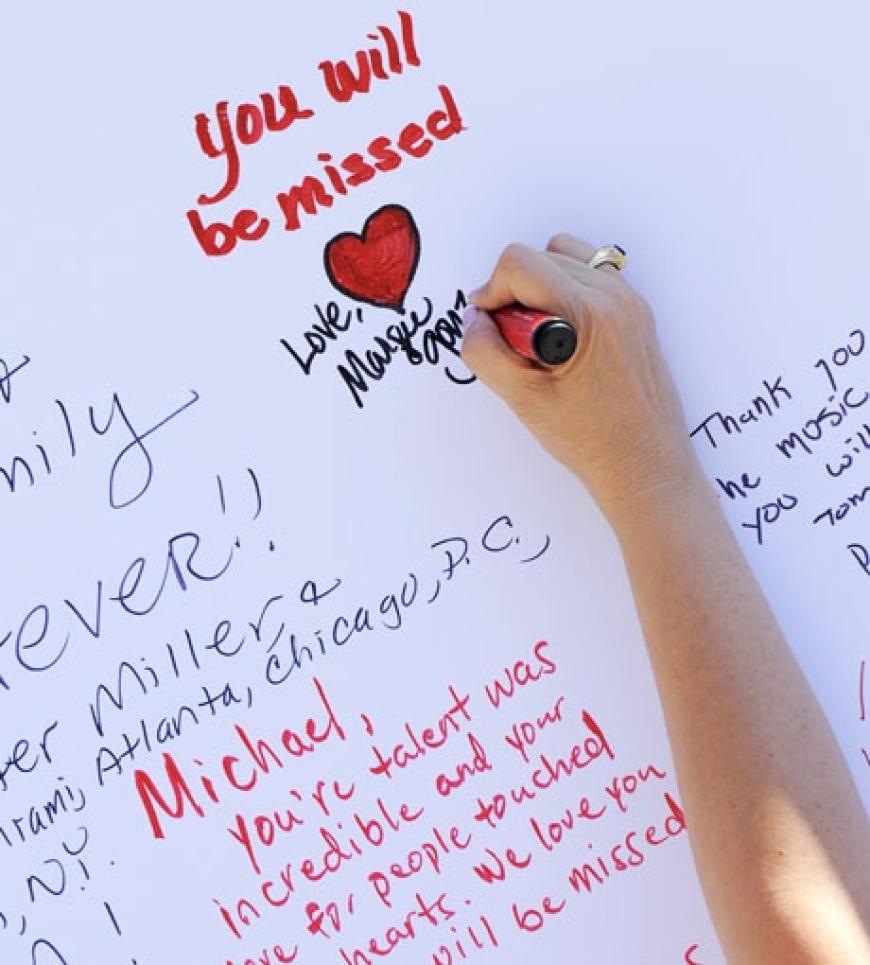 you will
be missed
Love,
Margie
Thank you
the music
you will
Tom
mily
ever!!
er Miller, &
iami, Atlanta, Chicago, D.C.,
, N.Y.
Michael,
you're talent was
incredible and your
love for people touched
hearts. We love you
will be missed